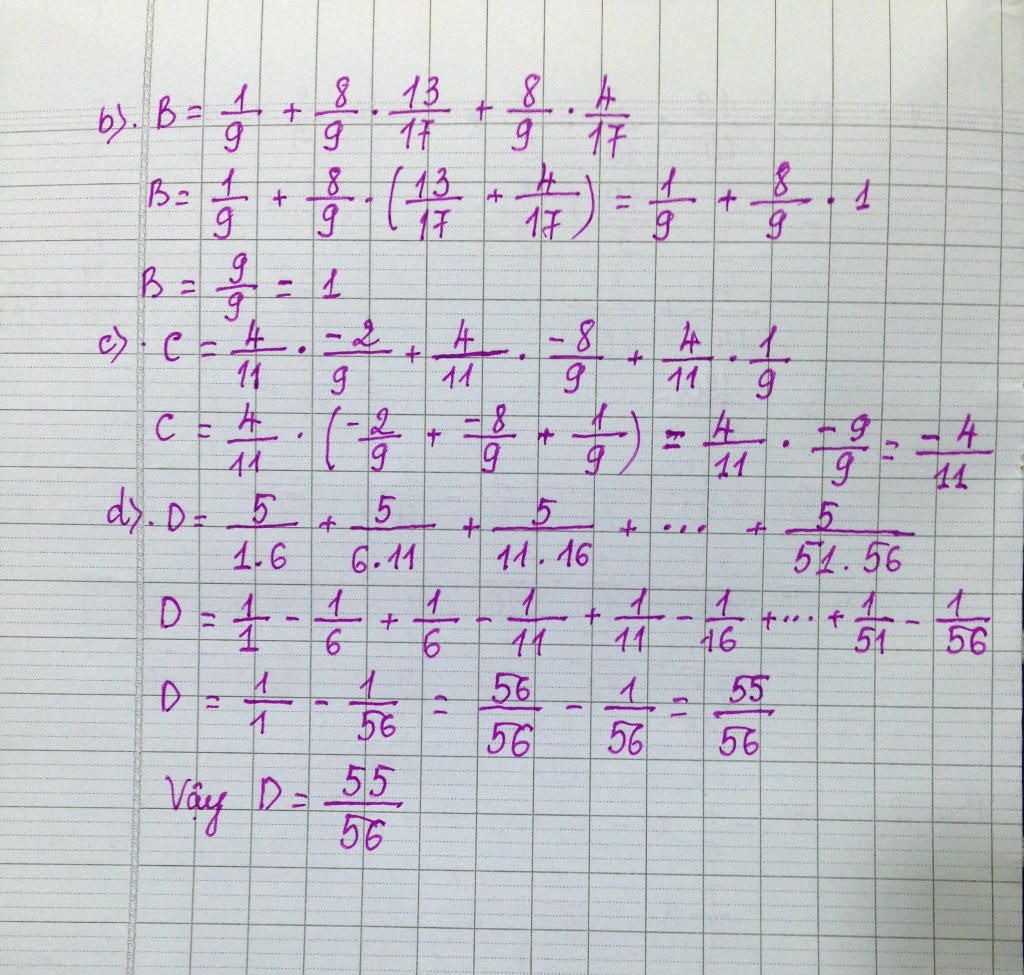 b). B = 1/9 + 8/9 . 13/17 + 8/9 . 4/17
B = 1/9 + 8/9 . (13/17 + 4/17) = 1/9 + 8/9 . 1
B = 9/9 = 1
c). C = 4/11 . -2/9 + 4/11 . -8/9 + 4/11 . 1/9
C = 4/11 . (-2/9 + -8/9 + 1/9) = 4/11 . -9/9 = -4/11
d). D = 5/1.6 + 5/6.11 + 5/11.16 + ... + 5/51.56
D = 1/1 - 1/6 + 1/6 - 1/11 + 1/11 - 1/16 + ... + 1/51 - 1/56
D = 1/1 - 1/56 = 56/56 - 1/56 = 55/56
Vậy D = 55/56